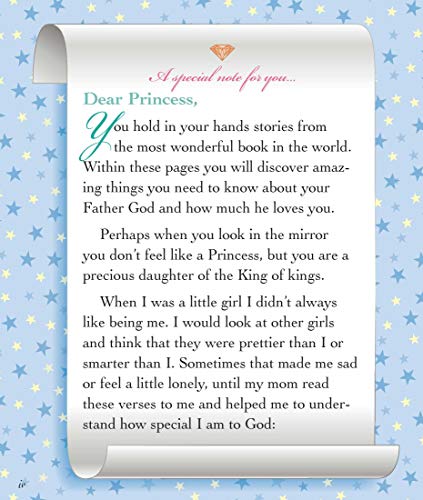 A special note for you...
Dear Princess,
You hold in your hands stories from
the most wonderful book in the world.
Within these pages you will discover amaz-
ing things you need to know about your
Father God and how much he loves you.
Perhaps when you look in the mirror
you don't feel like a Princess, but you are a
precious daughter of the King of kings.
When I was a little girl I didn't always
like being me. I would look at other girls
and think that they were prettier than I or
smarter than I. Sometimes that made me sad
or feel a little lonely, until my mom read
these verses to me and helped me to under-
stand how special I am to God:
iv